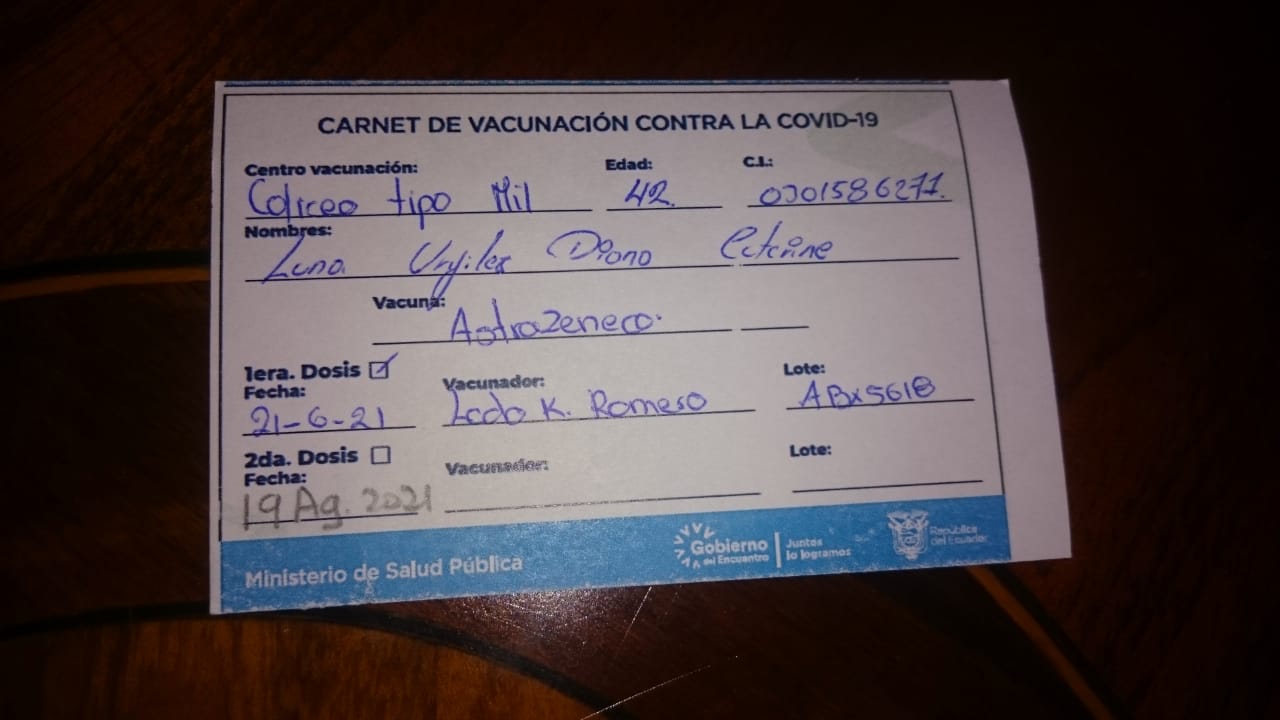 CARNET DE VACUNACIÓN CONTRA LA COVID-19
Centro vacunación: Edad: C.I.:
Coliseo tipo Mil 42 0301586271.
Nombres:
Luna Urgiles Diana Caterine
Vacuna:
Astrazeneca.
1era. Dosis
Fecha: Vacunador: Lote:
21-6-21 Lcdo K. Romero ABX5618
2da. Dosis
Fecha: Vacunador: Lote:
19 Ag. 2021
Ministerio de Salud Pública
Gobierno del Encuentro
Juntos lo logramos
República del Ecuador